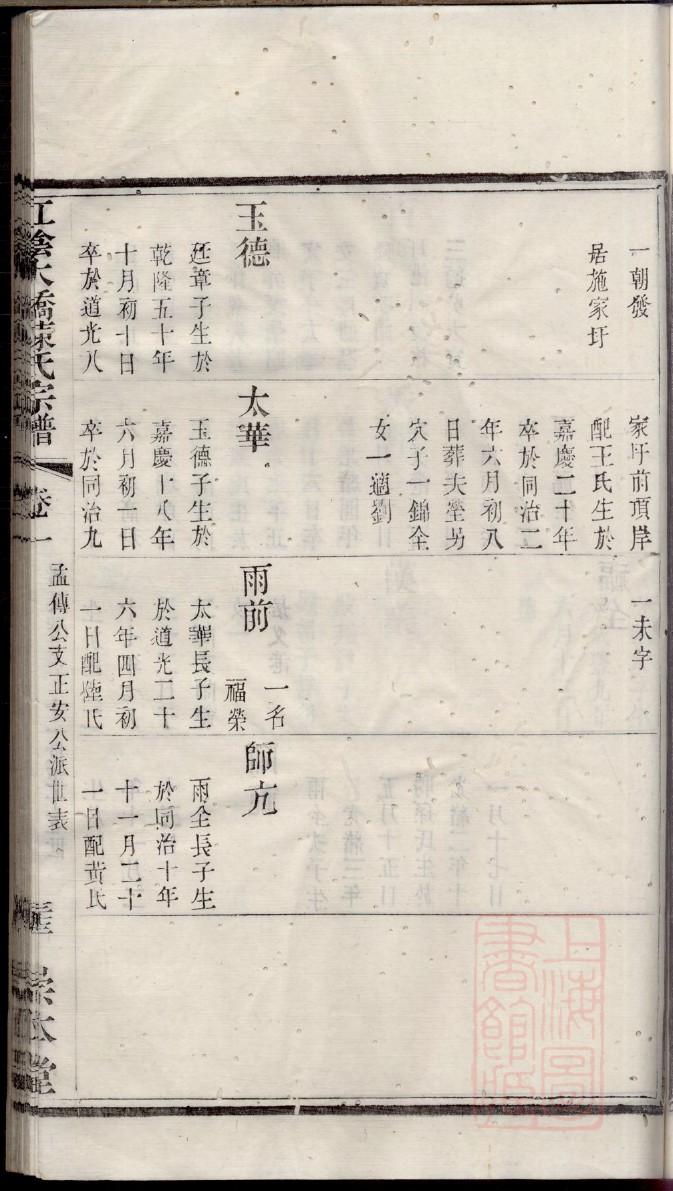 一朝發
居施家圩
玉德
廷章子生於
乾隆五十年
十月初十日
卒於道光八
家圩前項岸
配王氏生於
嘉慶二十年
卒於同治二
年六月初八
日葬夫塋另
穴子一錦全
女一適劉
太華
玉德子生於
嘉慶十八年
六月初一日
卒於同治九
一未字
雨前
一名
福榮
太華長子生
於道光二十
六年四月初
一日配陸氏
師亢
雨全長子生
於同治十年
十一月二十
一日配黃氏
江陰大橋陳氏宗譜
卷一
孟傳公支正安公派世表
宗本堂
上海圖
書館藏